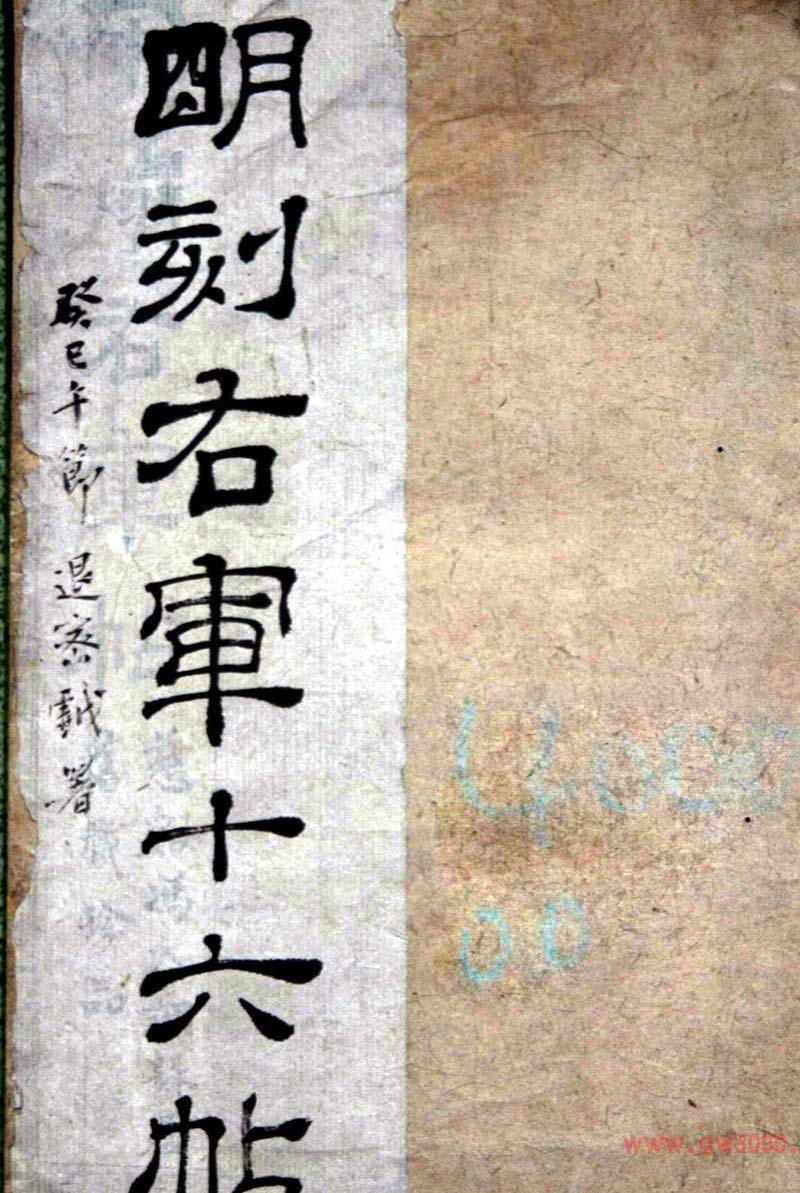 明刻右軍十六帖
癸巳午節 退密戲署
4000
00
www.gw5000.